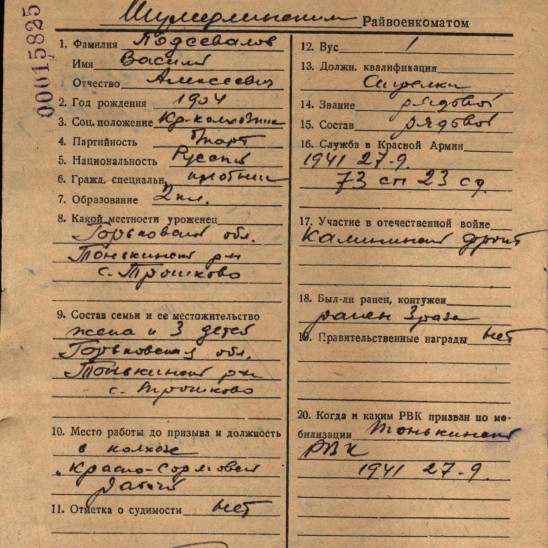 Шумерлинским Райвоенкоматом
00015825
1. Фамилия Подсевалов
Имя Василий
Отчество Алексеевич
2. Год рождения 1904
3. Соц. положение Кр-колхозник
4. Партийность б/парт
5. Национальность Русский
6. Гражд. специальн.
7. Образование 2 кл.
8. Какой местности уроженец
Горьковская обл.
Тонькинский р-н
с. Трошково
9. Состав семьи и ее местожительство
жена и 3 детей
Горьковская обл.
Тонькинский р-н
с. Трошково
10. Место работы до призыва и должность
в колхозе
"Красно-Сормовский
рабочий
11. Отметка о судимости нет
12. Вус 1
13. Должн. квалификация
Стрелки
14. Звание рядовой
15. Состав рядовой
16. Служба в Красной Армии
1941 27-9.
73 сп 23 сд.
17. Участие в отечественной войне
Калининский фронт
18. Был-ли ранен, контужен
ранен 3 раза
19. Правительственные награды нет
20. Когда и каким РВК призван по мо-
билизации Тонькинский
РВК
1941 27-9.